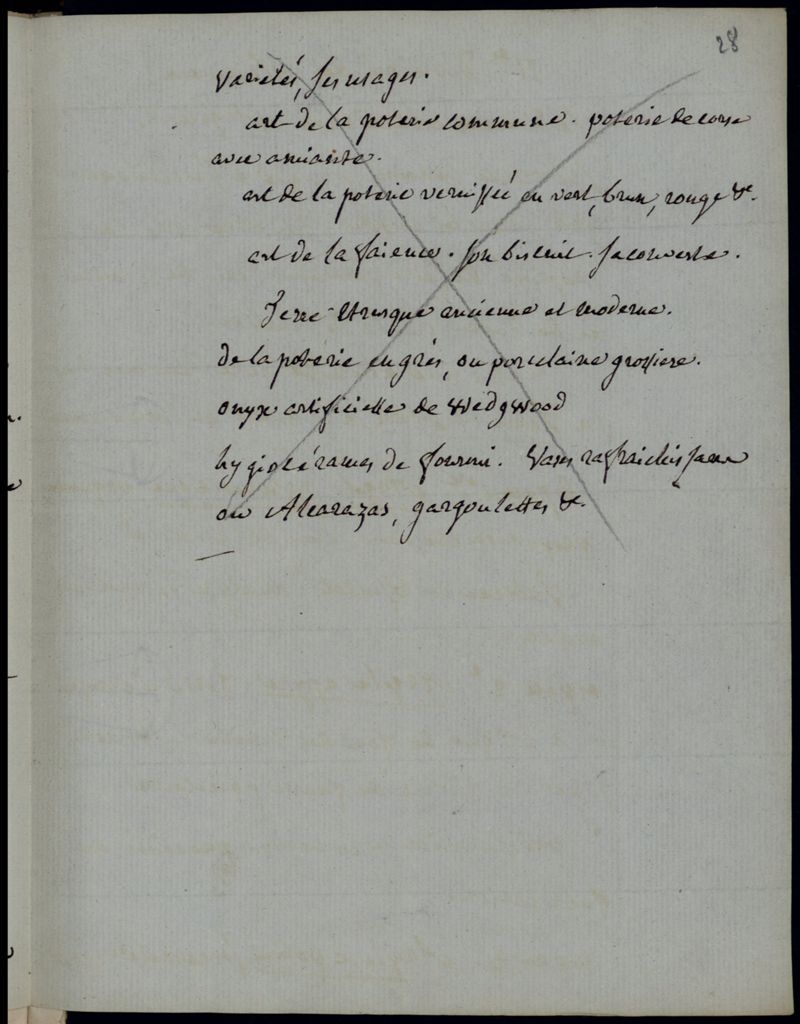 28
variétés, ses usages.
art de la poterie commune. poterie de corse
avec amiante.
art de la poterie vernissée en vert, brun, rouge &c.
art de la faience. son biscuit. sa couverte.
Terre Etrusque ancienne et moderne.
de la poterie en grès, ou porcelaine grossiere.
onyx artificielle de Wedgwood
hygiocérames de fourmi. Vases rafraichissans
ou Alcarazas, gargoulettes &.